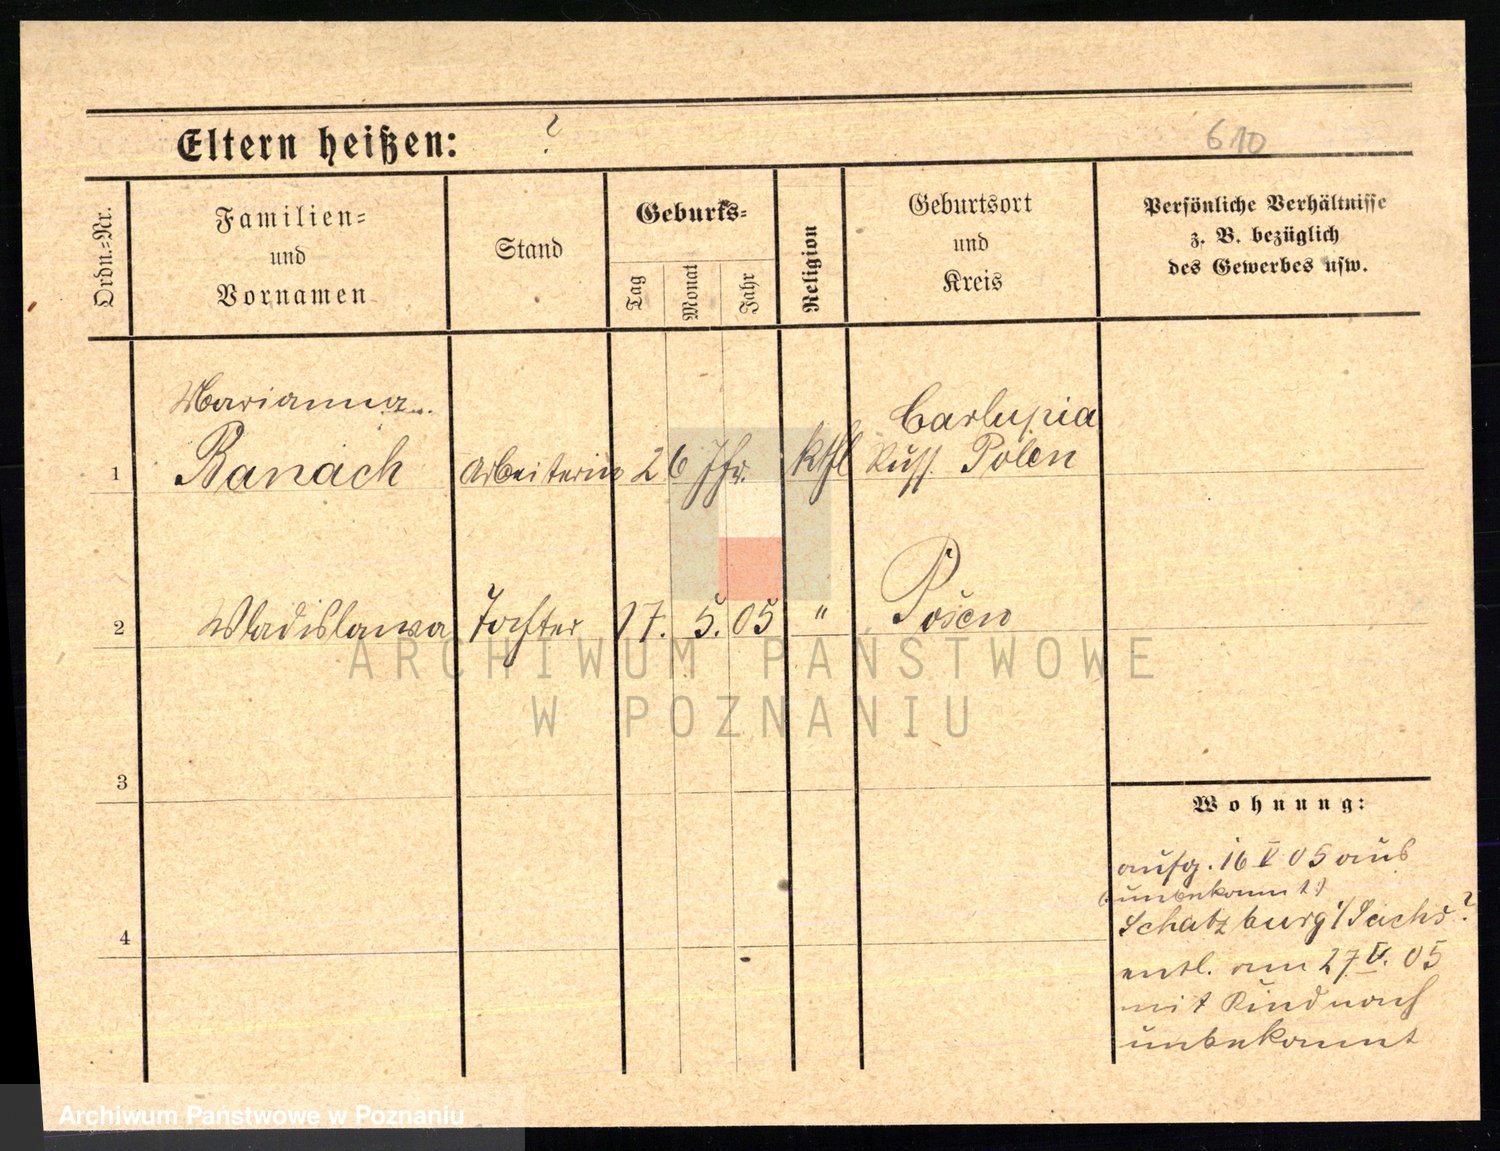 Eltern heißen: ?
610
Ordn.=Nr.
Familien=
und
Vornamen
Stand
Geburts=
Tag
Monat
Jahr
Religion
Geburtsort
und
Kreis
Persönliche Verhältnisse
z. B. bezüglich
des Gewerbes usw.
Marianna
1 Banach Arbeiterin 26 Jhr. kthl Russ. Polen
2 Wladislawa Tochter 17. 5. 05 " Posen
ARCHIWUM PAŃSTWOWE
W POZNANIU
3
Wohnung:
aufg. 16 V 05 aus
(: unbekannt :)
Schatzburg i/Sachs ?
4
entl. am 27 V. 05
mit Kind nach
unbekannt
Archiwum Państwowe w Poznaniu